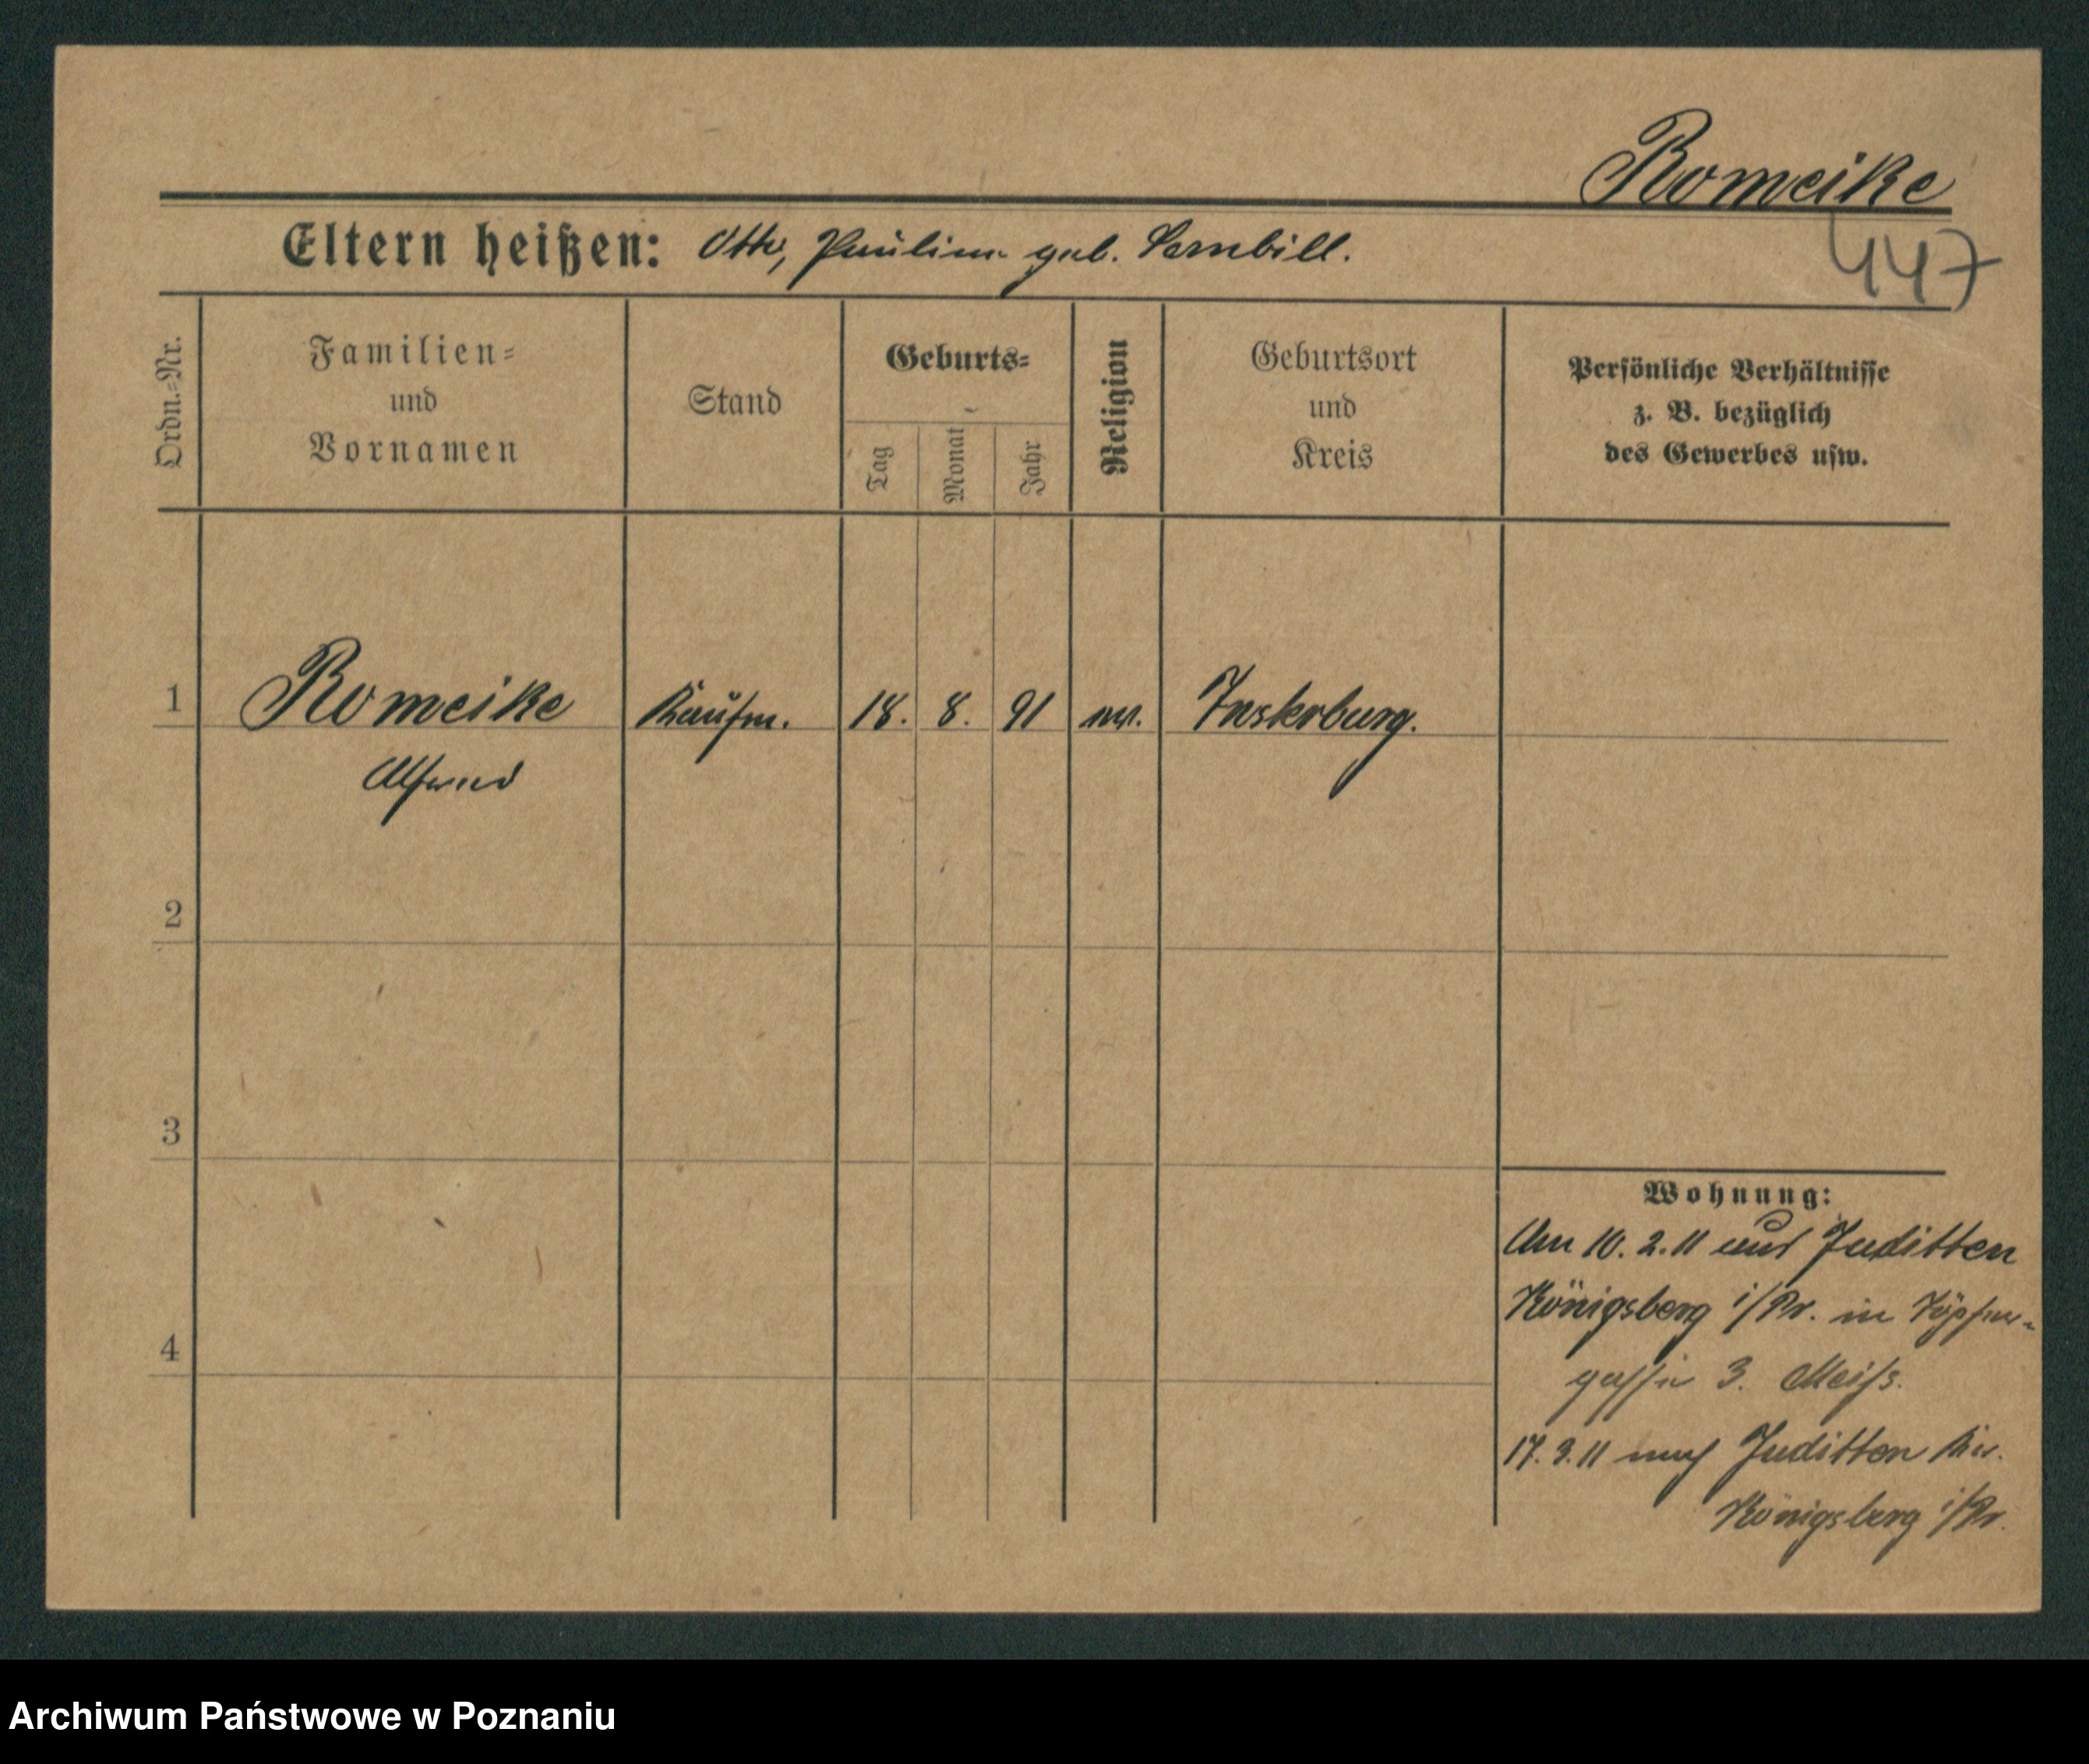 Romeike
447
Eltern heißen: Otto, Pauline geb. Sernbill.
Ordn.=Nr.
Familien=
und
Vornamen
Stand
Geburts=
Tag
Monat
Jahr
Religion
Geburtsort
und
Kreis
Persönliche Verhältnisse
z. B. bezüglich
des Gewerbes usw.
1 Romeike Kaufm. 18. 8. 91 ev. Insterburg.
Alfred
2
3
4
Wohnung:
Am 10. 2. 11 aus Juditten
Königsberg i/Pr. in Töpfer-
gasse 3.
17. 3. 11 nach Juditten Kr.
Königsberg i/Pr.
Archiwum Państwowe w Poznaniu